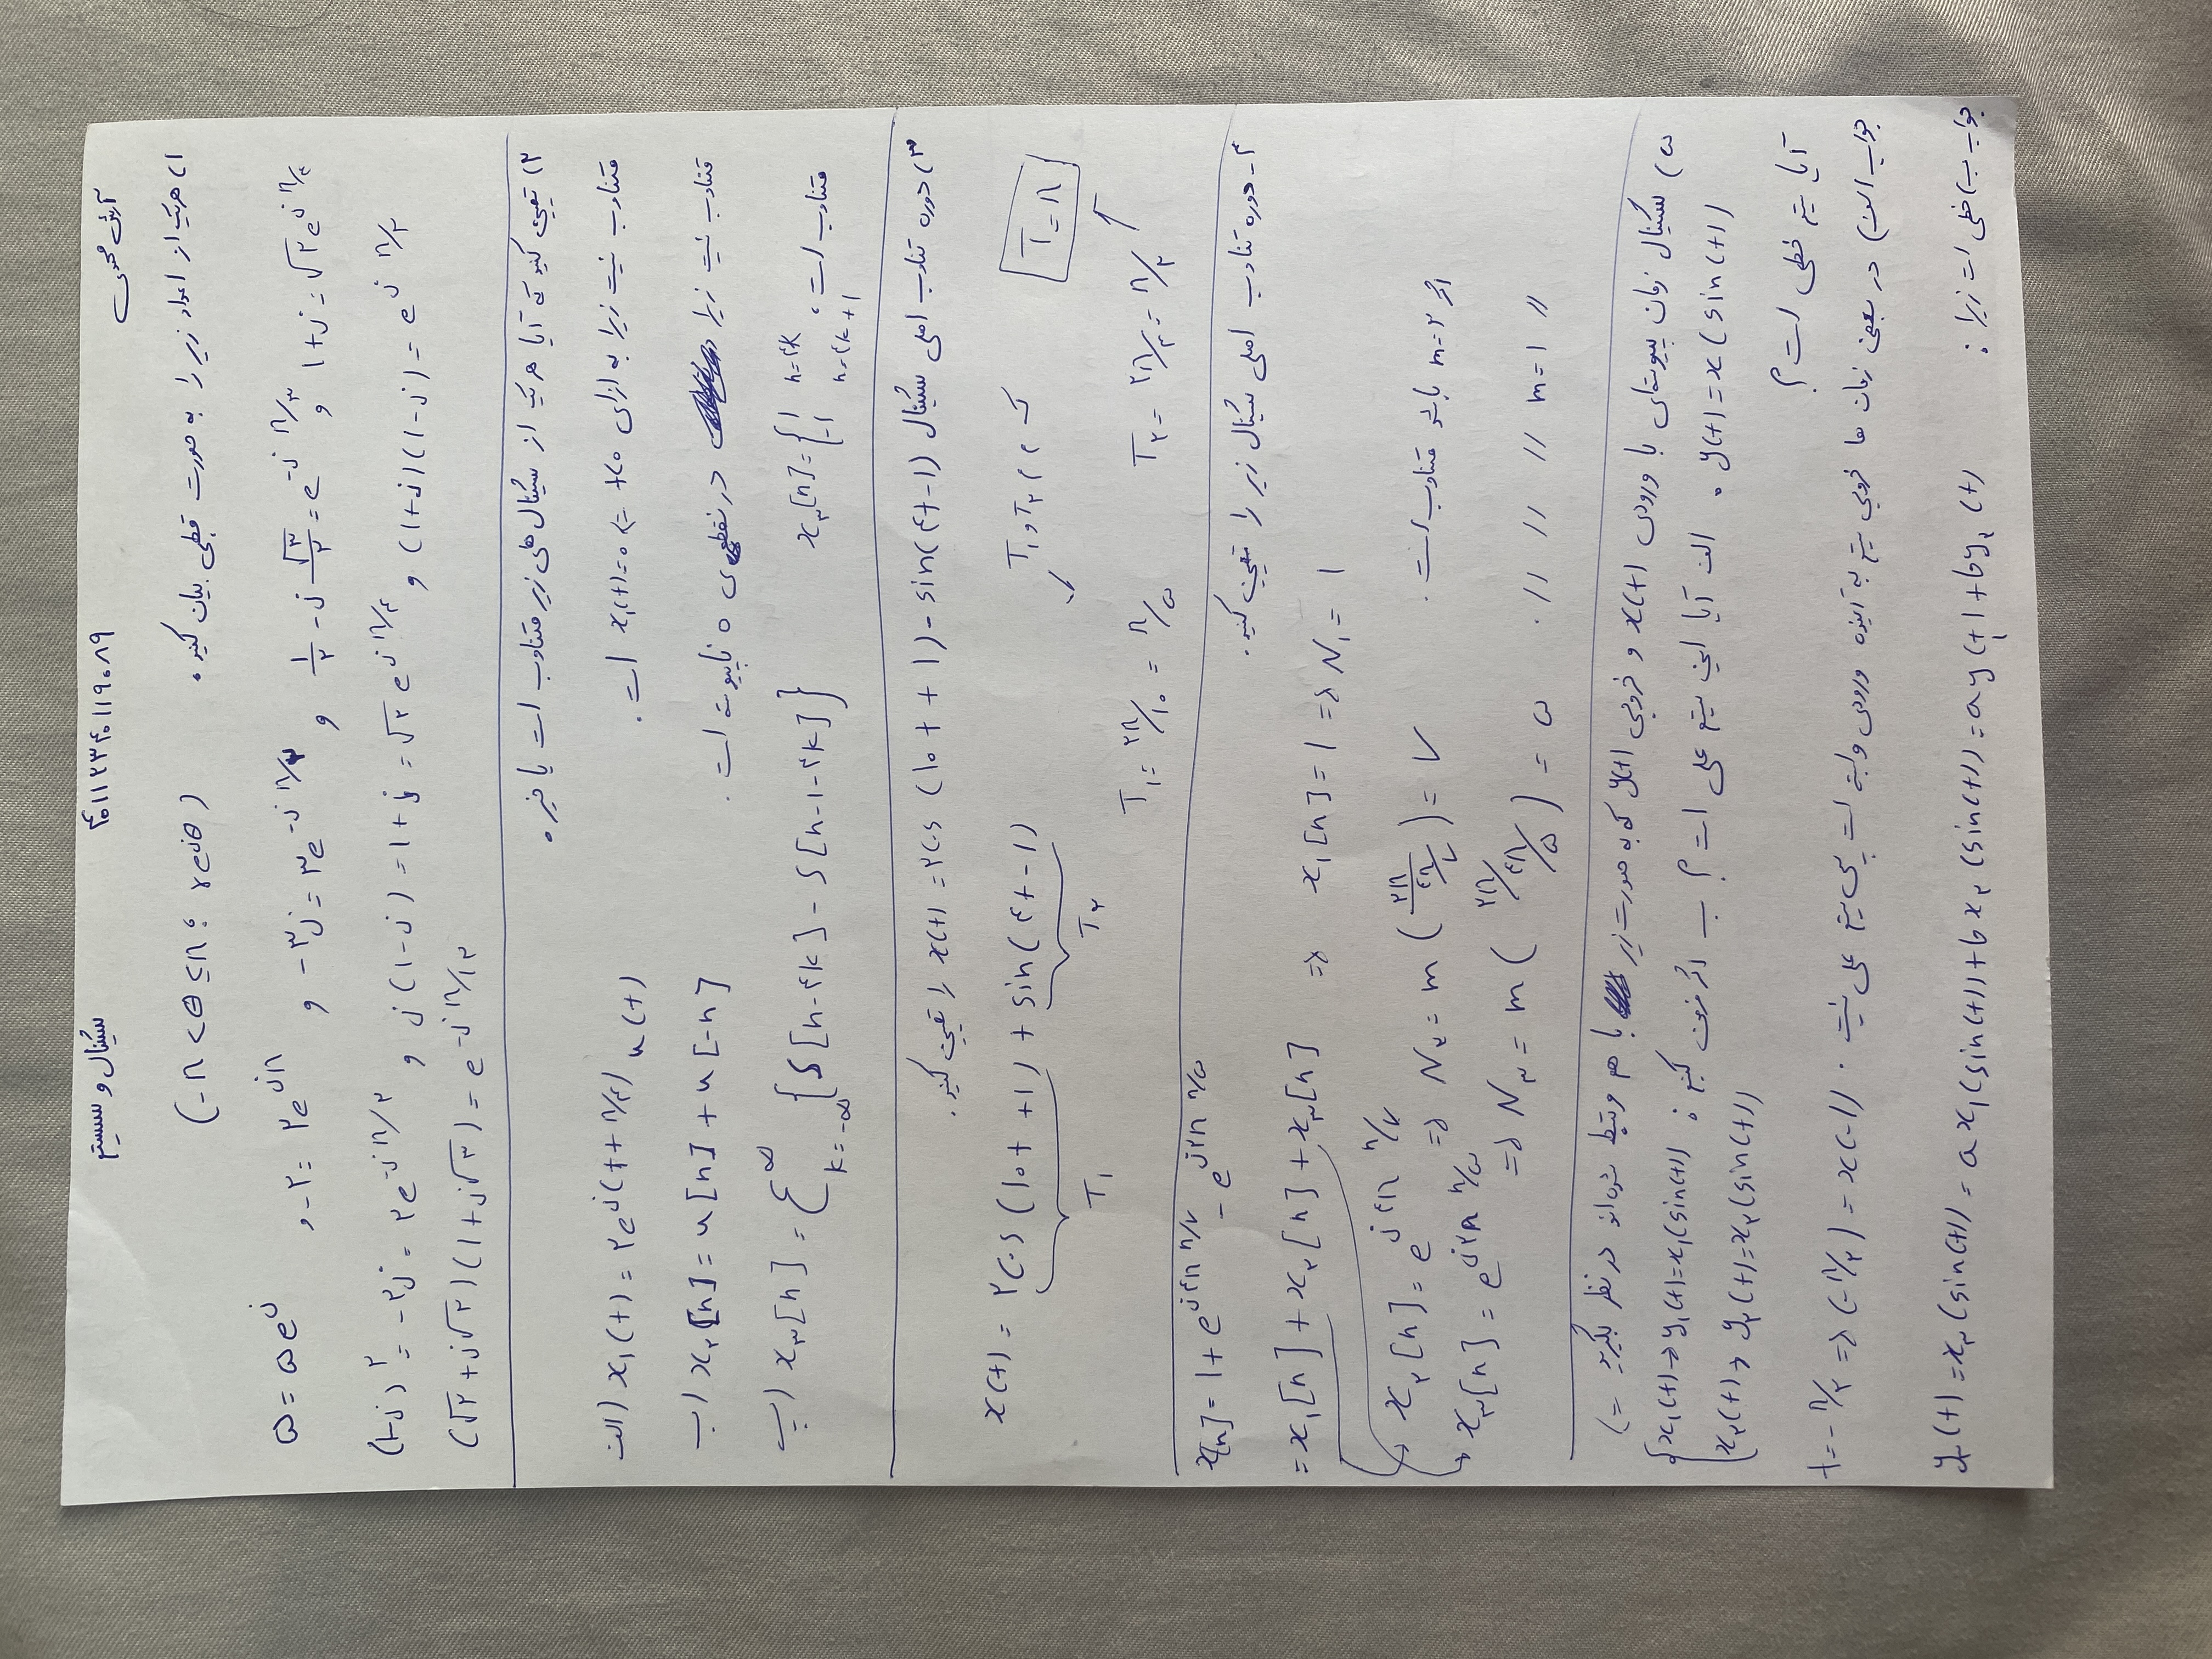 آرش محمدی ۴۰۱۱۲۳۴۰۱۱۹۰۸۹ سیگنال و سیستم
۱) هریک از اعداد زیر را به صورت قطبی بیان کنید. (-π < θ ≤ π ; re^jθ)
1+j = √۲ e^jπ/۴ و ۱/۲ - j √۳/۲ = e^-jπ/۳ و -۳j = ۳e^-jπ/۲ و -۲ = ۲e^jπ و ۵ = ۵e^j
(1+j)(1-j) = e^jπ/۲ و j(1-j) = 1+j = √۲ e^jπ/۴ و (1-j)^۲ = -۲j = ۲e^-jπ/۲
(√۲ + j√۲)(1+j√۳) = e^-jπ/۱۲
۲) تعیین کنید که آیا هریک از سیگنال های زیر متناوب است یا خیر.
الف) x₁(t) = ۲e^j(t+π/۴) u(t) متناوب نیست زیرا به ازای t<0 => x₁(t)=0 است.
ب) x₂[n] = u[n] + u[-n] متناوب نیست زیرا در نقطه ی 0 ناپیوسته است.
پ) x₃[n] = Σ_{k=-∞}^{∞} {δ[n-۴k] - δ[n-1-۴k]} متناوب است، x₃[n] = {1 n=۴k
-1 n=۴k+1
۳) دوره تناوب اصلی سیگنال x(t) = ۲cos(10t+1) - sin(۴t-1) را تعیین کنید.
x(t) = ۲cos(10t+1) + sin(۴t-1) ک م م T₁ و T₂ T=π
T₁ T₂
T₁ = ۲π/۱۰ = π/۵ T₂ = ۲π/۴ = π/۲
x[n] = 1 + e^j۴πn/۷ - e^j۲πn/۵
۴- دوره تناوب اصلی سیگنال زیر را تعیین کنید.
= x₁[n] + x₂[n] + x₃[n] => x₁[n] = 1 => N₁ = 1
x₂[n] = e^j۴πn/۷ => N₂ = m(۲π/۴π/۷) = ۷ اگر m=۲ باشد متناوب است.
x₃[n] = e^j۲πn/۵ => N₃ = m(۲π/۴π/۵) = ۵ // m=1 // // //.
۵) سیگنال زمان پیوسته‌ای با ورودی x(t) و خروجی y(t) که به صورت زیر با هم مرتبط شده‌اند در نظر بگیرید =>
y(t) = x(sin(t)). الف آیا این سیستم علی است؟ ب اگر فرض کنیم: {x₁(t) → y₁(t) = x₁(sin(t))
x₂(t) → y₂(t) = x₂(sin(t))
آیا سیستم خطی است؟
جواب الف) در بعضی زمان ها خروجی سیستم به آینده ورودی وابسته است پس سیستم علی نیست. t=-π/۲ => (-π/۲) = x(-1)
جواب ب) خطی است زیرا: y₃(t) = x₃(sin(t)) = ax₁(sin(t)) + bx₂(sin(t)) = ay₁(t) + by₂(t)